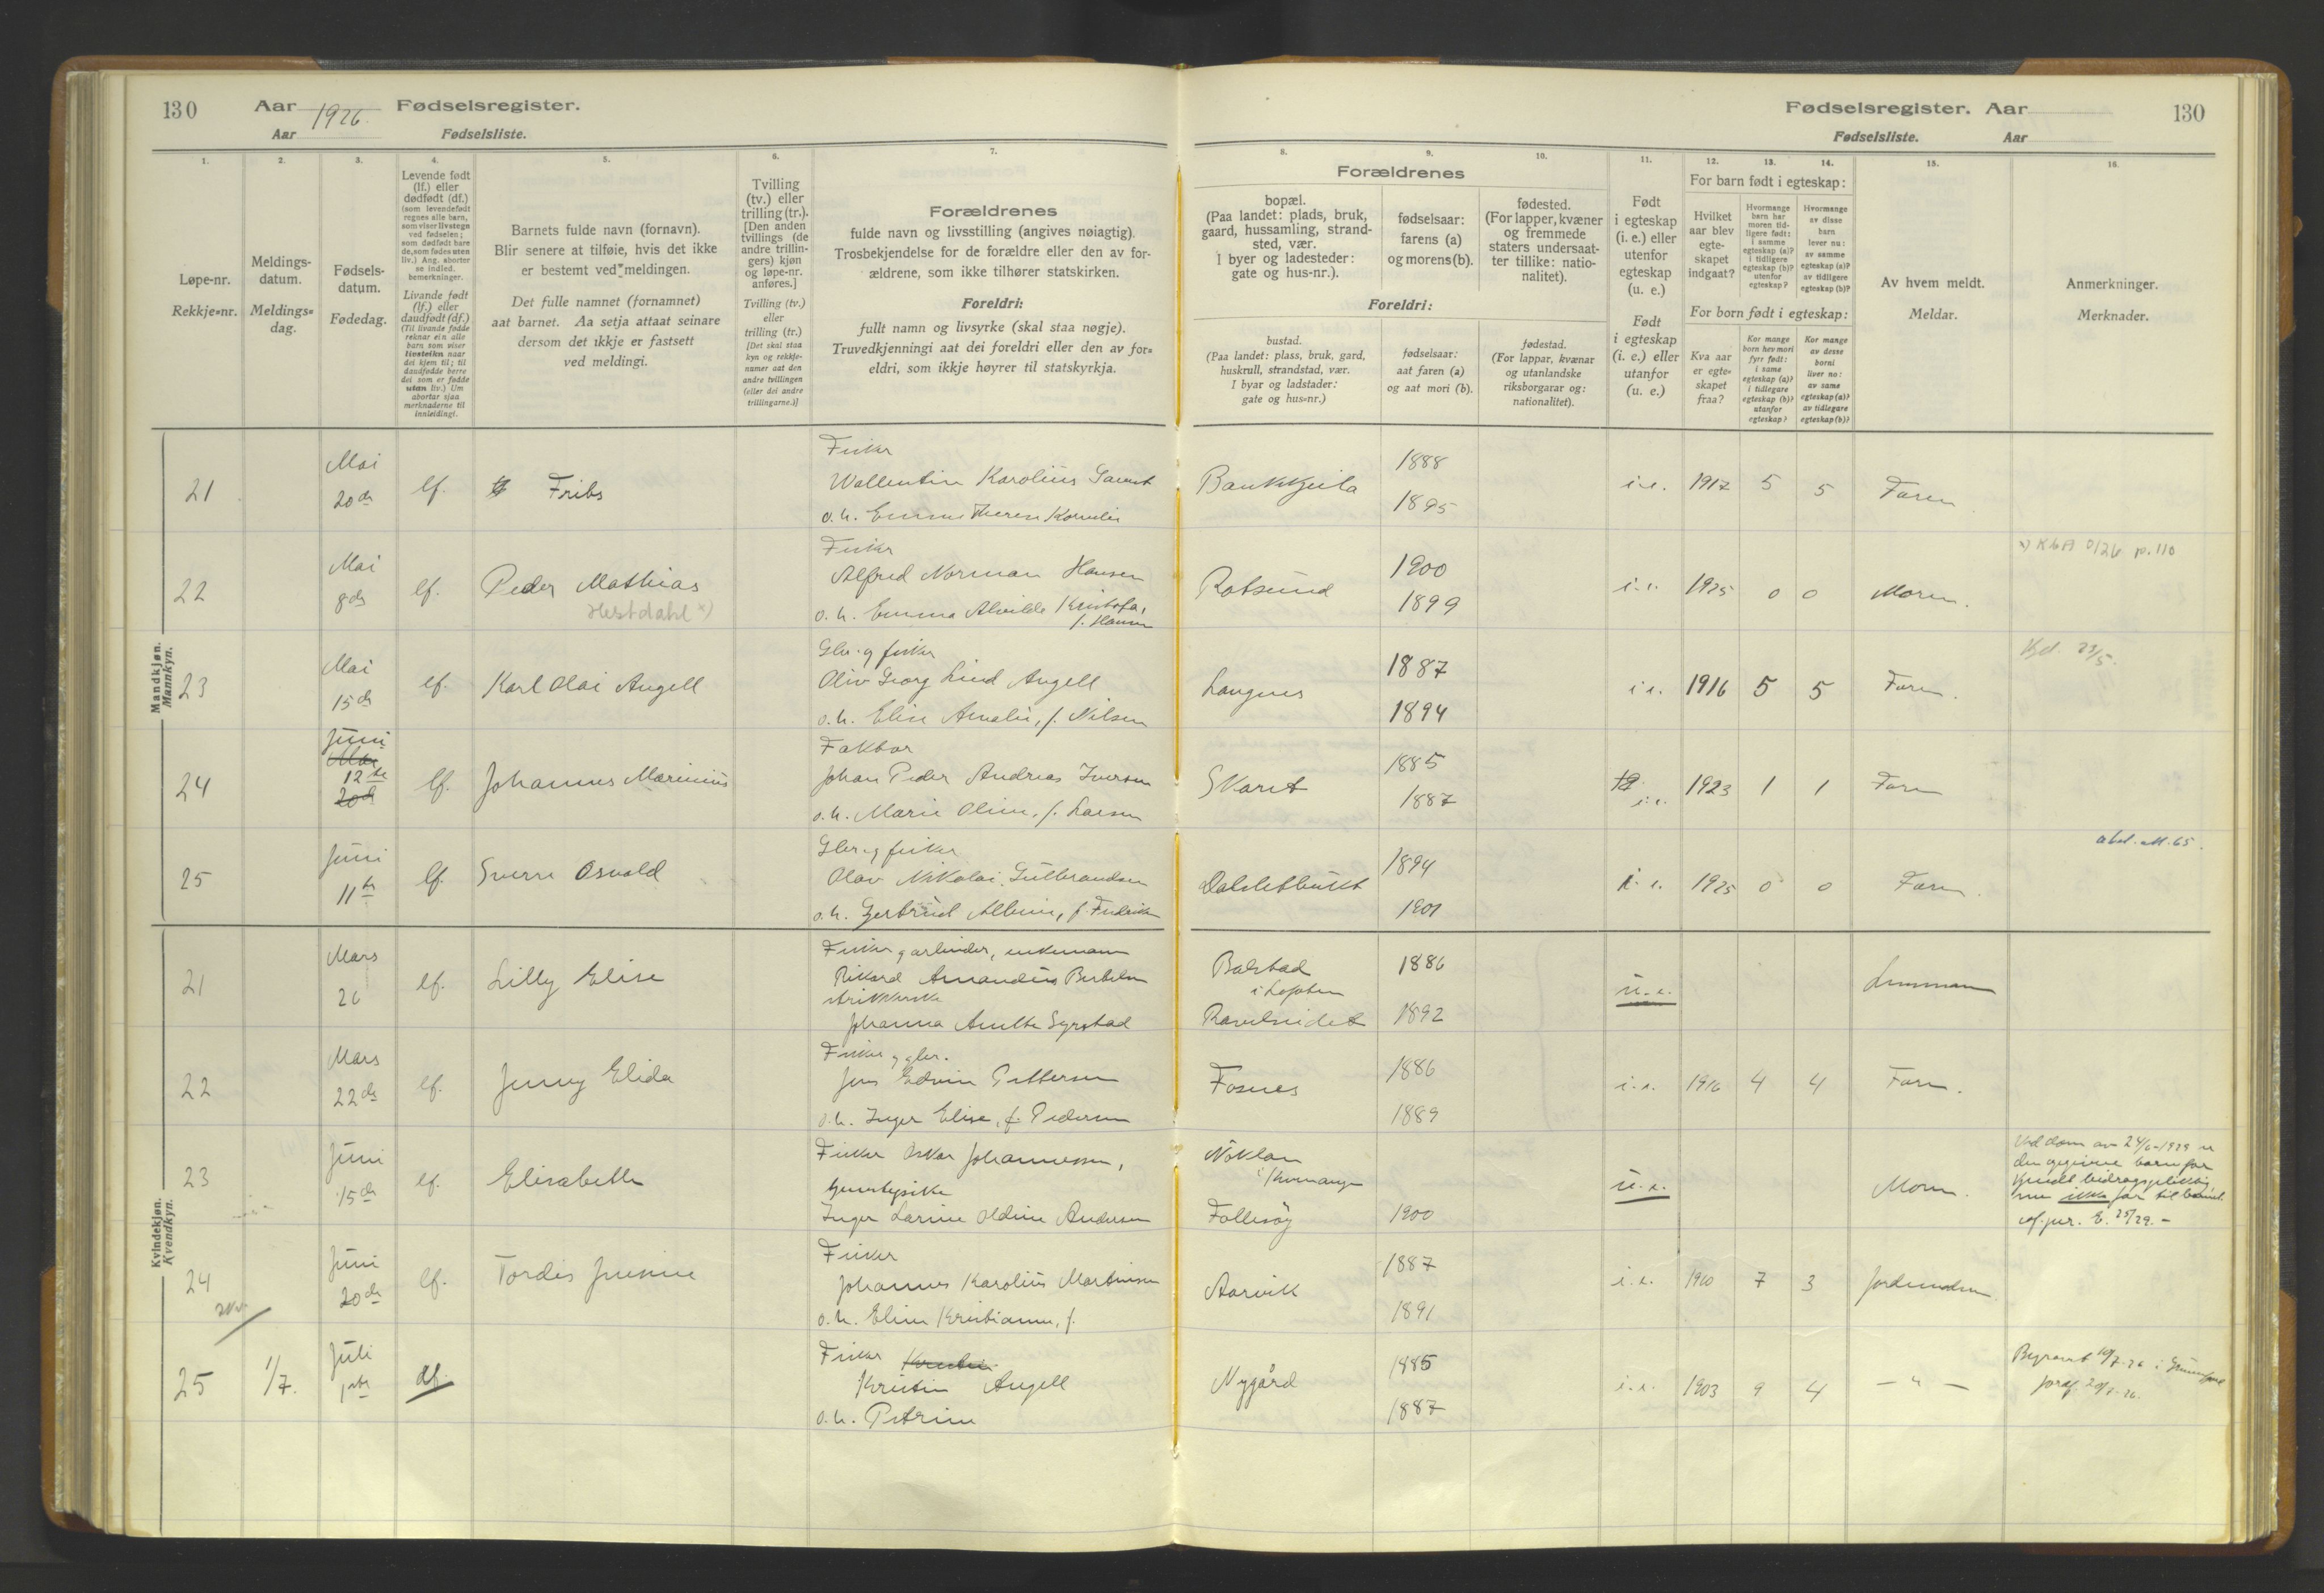 130 Aar 1926. Fødselsregister.
Aar Fødselsliste.
Fødselsregister. Aar 130
Fødselsliste. Aar
1. 2. 3. 4. 5. 6. 7.
Løpe-nr.
Rekkje-nr.
Meldings-
datum.
Meldings-
dag.
Fødsels-
datum.
Fødedag.
Levende født
(lf.) eller
dødfødt (df.)
(som levendefødt
regnes alle barn,
som viser livstegn
ved fødselen;
som dødfødt bare
de, som fødes uten
liv.) Ang. aborter
se indled.
bemerkninger.
Livande født
(lf.) eller
daudfødt (df.)
(Til livande fødde
reknar ein alle
barn som viser
livsteikn naar
dei kjem til; til
daudfødde berre
dei som er fødde
utan liv.) Um
abortar sjaa
merknaderne til
innleidingi.
Barnets fulde navn (fornavn).
Blir senere at tilføie, hvis det ikke
er bestemt ved meldingen.
Det fulle namnet (fornamnet)
aat barnet. Aa setja attaat seinare
dersom det ikkje er fastsett
ved meldingi.
Tvilling
(tv.) eller
trilling (tr.).
[Den anden
tvillings (de
andre trillin-
gers) kjøn
og løpe-nr.
anføres.]
Tvilling (tv.)
eller
trilling (tr.)
[Det skal staa
kyn og rekkje-
numer aat den
andre tvillingen
(eller dei andre
trillingarne.)]
Forældrenes
fulde navn og livsstilling (angives nøiagtig).
Trosbekjendelse for de forældre eller den av for-
ældrene, som ikke tilhører statskirken.
Foreldri:
fullt namn og livsyrke (skal staa nøgje).
Truvedkjenningi aat dei foreldri eller den av for-
eldri, som ikkje høyrer til statskyrkja.
8. 9. 10. 11. 12. 13. 14. 15. 16.
Forældrenes
bopæl.
(Paa landet: plads, bruk,
gaard, hussamling, strand-
sted, vær.
I byer og ladesteder:
gate og hus-nr.).
fødselsaar:
farens (a)
og morens (b).
fødested.
(For lapper, kvæner
og fremmede
staters undersaat-
ter tillike: natio-
nalitet).
Foreldri:
bustad.
(Paa landet: plass, bruk, gard,
huskrull, strandstad, vær.
I byar og ladstader:
gate og hus-nr.)
fødselsaar:
aat faren (a)
og aat mori (b).
fødestad.
(For lappar, kvænar
og utanlandske
riksborgarar og:
nationalitet).
Født
i egteskap
(i. e.) eller
utenfor
egteskap
(u. e.)
Født
i egteskap
(i. e.) eller
utanfor
(u. e.)
For barn født i egteskap:
Hvilket
aar blev
egte-
skapet
indgaat?
Hvormange
barn har
moren tid-
ligere født:
i samme
egteskap (a)?
i tidligere
egteskap (b)?
utenfor
egteskap?
Hvormange
av disse
barn
lever nu:
av samme
egteskap (a)?
av tidligere
egteskap (b)?
For born født i egteskap:
Kva aar
er egte-
skapet
fraa?
Kor mange
born hev mori
fyrr født:
i same
egteskap (a)?
i tidlegare
egteskap (b)?
utanfor
egteskap?
Kor mange
av desse
borni
liver no:
av same
egteskap (a)?
av tidlegare
egteskap (b)?
Av hvem meldt.
Meldar.
Anmerkninger.
Merknader.
Mandkjøn.
Mannkyn.
21 Mai 20de lf. Fribs
Fisker
Wallentin Karolius
o. h.
1888
1895
i.e. 1917 5 5 Faren
22 Mai 8de lf. Peder Mathias
Hestdahl x)
Fisker
Alfred Norman Hansen
o. h. Emma Alvilde
f. Hansen
Rotsund
1900
1899
i.e. 1925 0 0 Moren.
p. 110
23 Mai 15de lf. Karl Olai Angell
Gbr. og fisker
Oliv Georg Lind Angell
o. h. Elise Amalie, f. Nilsen
Langnes
1887
1894
i e. 1916 5 5 Faren.
23/5.
24 Juni
Mai
12te
20de
lf. Johannes Marinius
Faktor
Johan Peder Andreas Iversen
o. h. Marie Oline, f. Larsen
1885
1887
i.e. 1923 1 1 Faren
25 Juni 11te lf. Sverre Osvald
Gbr. og fisker
Olav Nikolai Gulbrandsen
o. h. Gertrud Albine, f.
1894
1901
i. e. 1925 0 0 Faren.
Kvindekjøn.
Kvendkyn.
21 Mars 26 lf. Lilly Elise
Fisker og arbeider, enkemann
Rikard Amandus
Johanna
Balstad
i Lofoten
1886
1892
u. e. Lensmann
22 Mars 22de lf. Jenny Elida
Fisker og gbr.
Jens Edvin Pettersen
o. h. Inger Elise, f. Pedersen
Fosnes
1886
1889
i. e. 1916 4 4 Faren.
23 Juni 15de lf. Elisabeth
Fisker Oskar Johannessen,
Inger Larine Oldine Andersen
i Kvænangen
1900
u. e. Moren.
Ved dom av 24/6-1929 er
den opgivne barnefar
kjendt bidragspliktig,
men ikke far til barnet.
24 Juni 20de lf. Tordis
Fisker
Johannes Karolius Martinsen
o. h. Eline Kristianne, f.
Aarvik
1887
1891
i. e. 1910 7 3 Jordmoderen.
25 1/7. Juli 1ste df.
Fisker
Kristin Angell
o. h. Petrine
Nygård
1885
1887
i. e. 1903 9 4 — " —